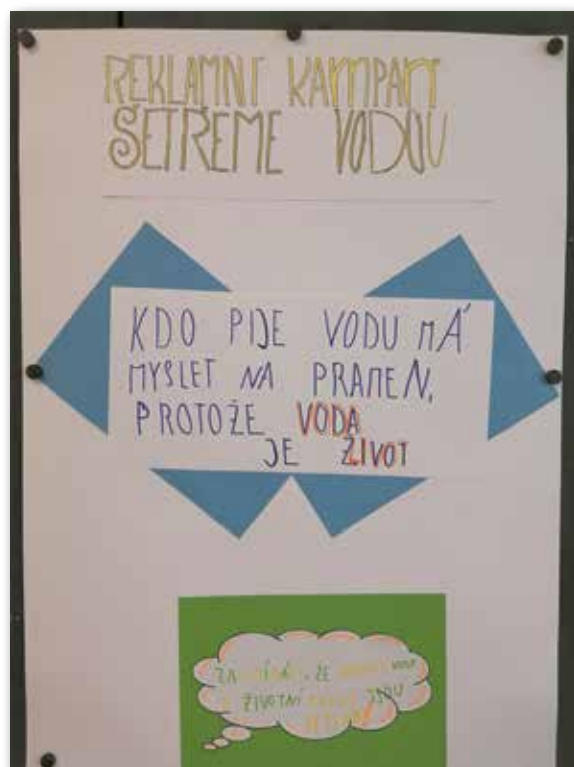 REKLAMNÍ KAMPAŇ
ŠETŘEME VODOU
KDO PIJE VODU MÁ
MYSLET NA PRAMEN,
PROTOŽE VODA
JE ŽIVOT
ŽE
ŽIVOTNÍ JSOU